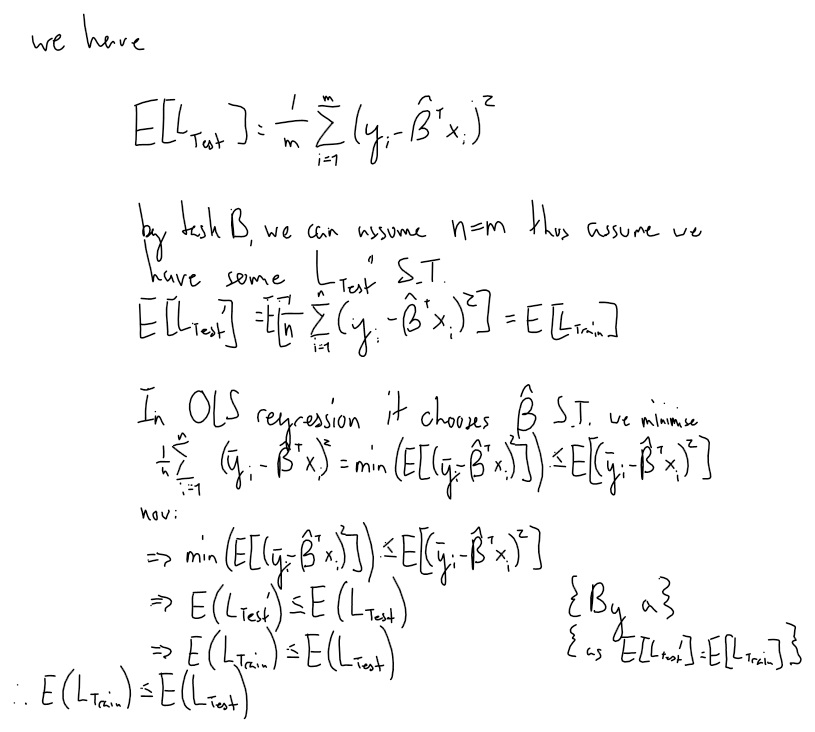 we have
E[L_Test] = 1/m Σ_{i=1}^{m} (y_i - β̂ᵀx_i)²
by task B, we can assume n=m thus assume we
have some L_Test' S.T.
E[L_Test'] = E[1/n Σ_{i=1}^{n} (y_i - β̂ᵀx_i)²] = E[L_Train]
In OLS regression it chooses β̂ S.T. we minimise
1/n Σ_{i=1}^{n} (ȳ_i - β̂ᵀx_i)² = min(E[(ȳ_i - β̂ᵀx_i)²]) ≤ E[(ȳ_i - β̂ᵀx_i)²]
now:
⇒ min(E[(ȳ_i - β̂ᵀx_i)²]) ≤ E[(ȳ_i - β̂ᵀx_i)²]
⇒ E(L_Test') ≤ E(L_Test) {By a}
⇒ E(L_Train) ≤ E(L_Test) {as E[L_test'] = E[L_Train]}
∴ E(L_Train) ≤ E(L_Test)